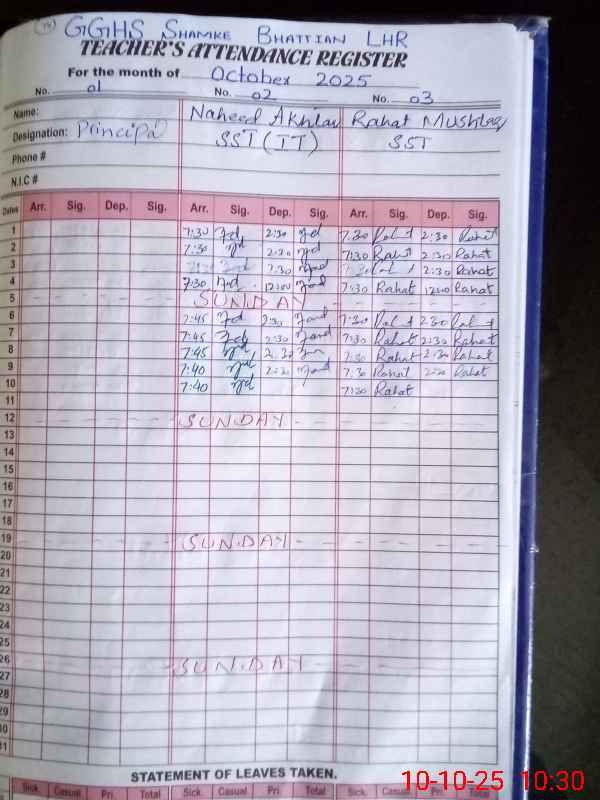 GGHS SHAMKE BHATTIAN LHR
TEACHER'S ATTENDANCE REGISTER
For the month of October 2025
No. 01 No. 02 No. 03
Name: Naheed Akhtar Rahat Mushtaq
Designation: Principal SST (IT) SST
Phone #
N.I.C #
Dates Arr. Sig. Dep. Sig. Arr. Sig. Dep. Sig. Arr. Sig. Dep. Sig.
1 7:30 2:30 7:30 2:30 Rahat
2 7:30 2:30 7:30 Rahat 2:30 Rahat
3 2:30 2:30 Rahat
4 7:30 12:00 7:30 Rahat 12:00 Rahat
5 SUNDAY
6 7:45 2:30 7:30 2:30
7 7:45 2:30 7:30 Rahat 2:30 Rahat
8 7:45 2:30 7:30 Rahat 2:30 Rahat
9 7:40 2:30 7:30 Rahat 2:30 Rahat
10 7:40 7:30 Rahat
11
12 SUNDAY
13
14
15
16
17
18
19 SUNDAY
20
21
22
23
24
25
26 SUNDAY
27
28
29
30
31
STATEMENT OF LEAVES TAKEN.
Sick Casual Pri. Total Sick. Casual Pri. Total Sick. Casual Pri Total
10-10-25 10:30